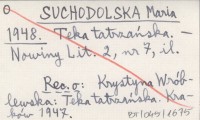 SUCHODOLSKA Maria
1948. Teka tatrzańska. —
Nowiny Lit. 2, nr 7, il.
Rec. o: Krystyna Wrób-
lewska: Teka tatrzańska. Kra-
ków 1947.